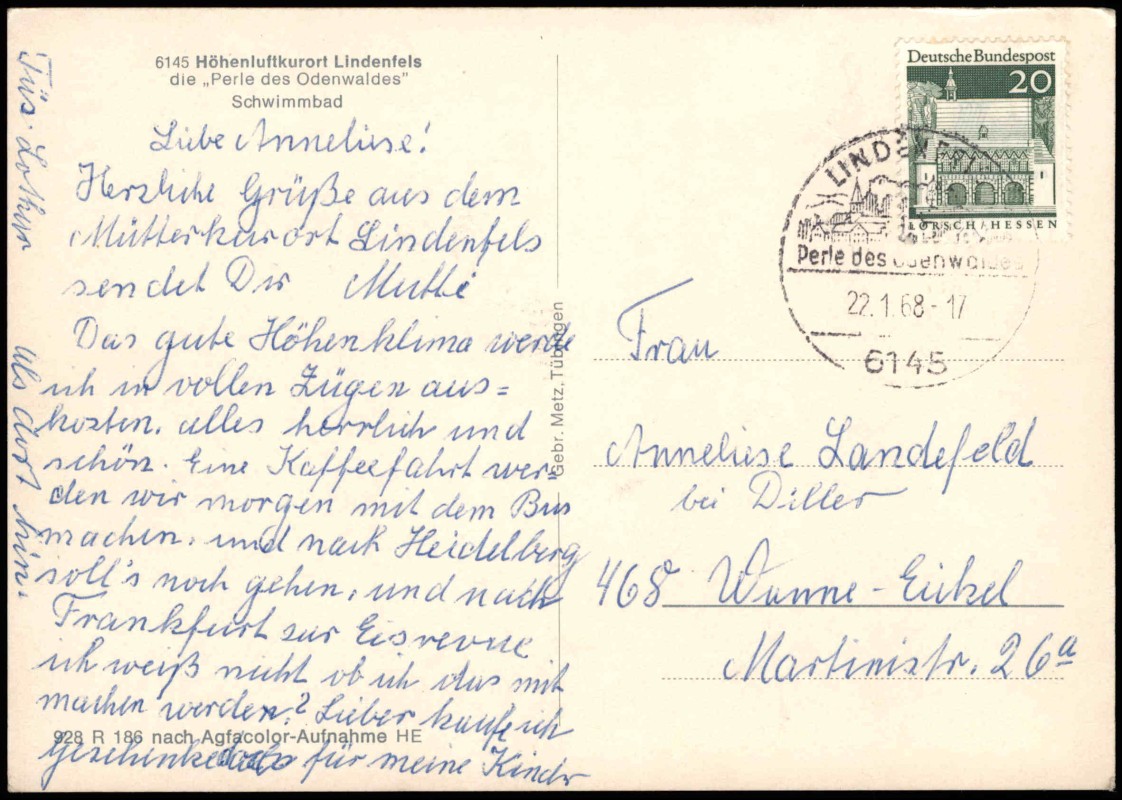 6145 Höhenluftkurort Lindenfels
die „Perle des Odenwaldes"
Schwimmbad
Liebe Anneliese!
Herzliche Grüße aus dem
Mütterkurort Lindenfels
sendet Dir Mutti
Das gute Höhenklima werde
ich in vollen Zügen aus=
kosten. alles herrlich und
schön. Eine Kaffeefahrt wer=
den wir morgen mit dem Bus
machen, und nach Heidelberg
soll's noch gehen, und nach
Frankfurt zur Eisrevue
ich weiß nicht ob ich das mit
machen werden? Lieber kaufe ich
928 R 186 nach Agfacolor-Aufnahme HE
Geschenke für meine Kinder
als dort hin.
Tüs. Lothar
Gebr. Metz, Tübingen
Deutsche Bundespost
20
LORSCH/HESSEN
LINDENFELS
Perle des Odenwaldes
22.1.68-17
6145
Frau
Anneliese Landefeld
bei Diller
468 Wanne-Eickel
Martinistr. 26a